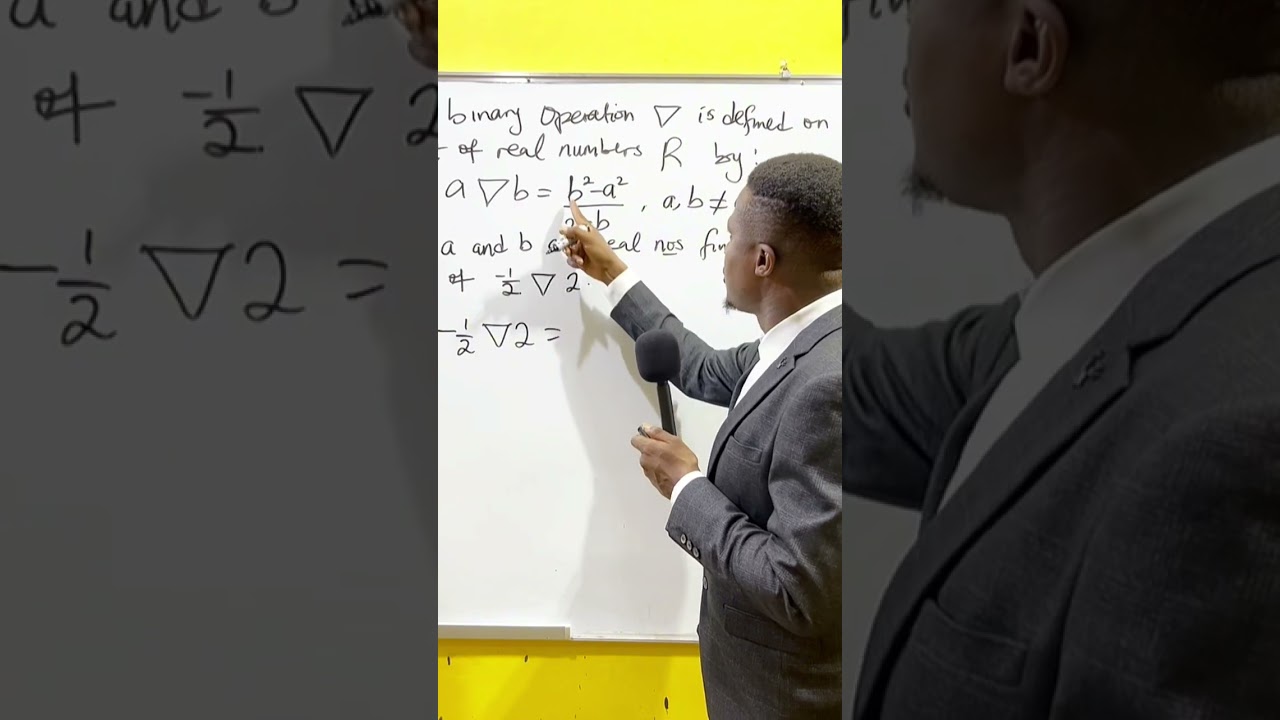 binary operation ▽ is defined on
of real numbers R by:
a ▽ b = b²-a² / b , a, b ≠
a and b real nos
of -1/2 ▽ 2.
-1/2 ▽ 2 =